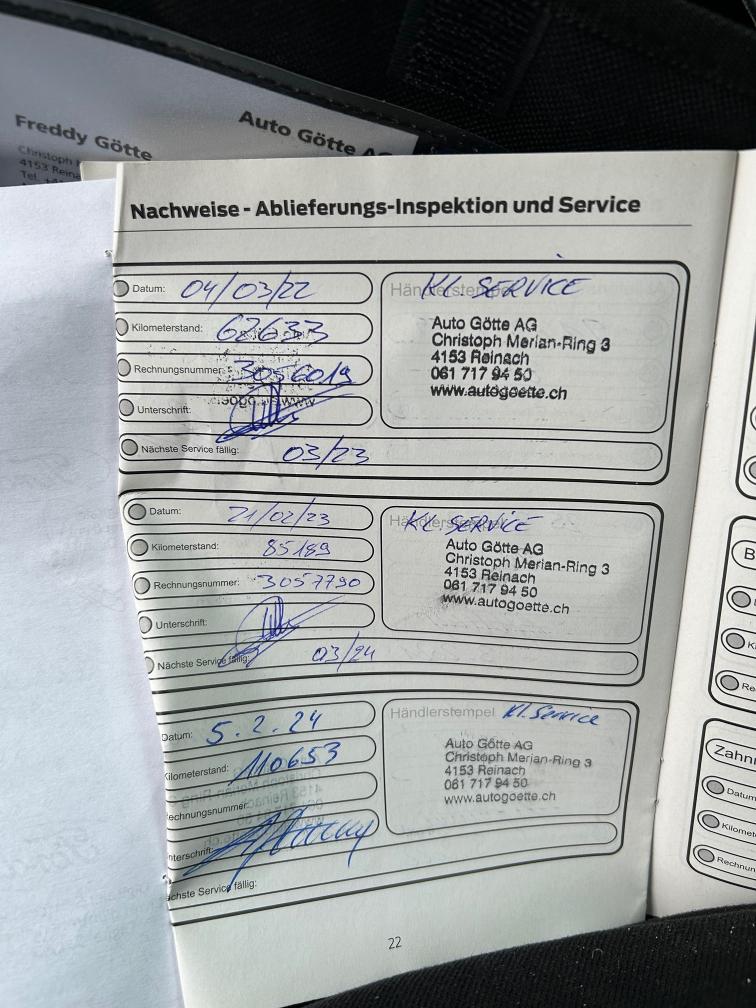 Freddy Götte
Auto Götte AG
Christoph
4153 Reina
Tel.
Nachweise - Ablieferungs-Inspektion und Service
Datum: 04/03/22
Kilometerstand: 62633
Rechnungsnummer: 3056019
Unterschrift:
Nächste Service fällig: 03/23
Händlerstempel KL. SERVICE
Auto Götte AG
Christoph Merian-Ring 3
4153 Reinach
061 717 94 50
www.autogoette.ch
Datum: 21/02/23
Kilometerstand: 85189
Rechnungsnummer: 3057790
Unterschrift:
Nächste Service fällig: 03/24
Händlerstempel KL SERVICE
Auto Götte AG
Christoph Merian-Ring 3
4153 Reinach
061 717 94 50
www.autogoette.ch
Datum: 5.2.24
Kilometerstand: 110653
echnungsnummer:
nterschrift:
ächste Service fällig:
Händlerstempel Kl. Service
Auto Götte AG
Christoph Merian-Ring 3
4153 Reinach
061 717 94 50
www.autogoette.ch
22
B
Ki
Re
Zahn
Datum
Kilomet
Rechnun